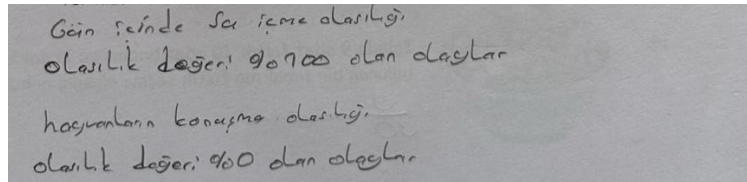 Gün içinde su içme olasılığı
olasılık değeri %100 olan olaylar
hayvanların konuşma olasılığı
olasılık değeri %0 olan olaylar